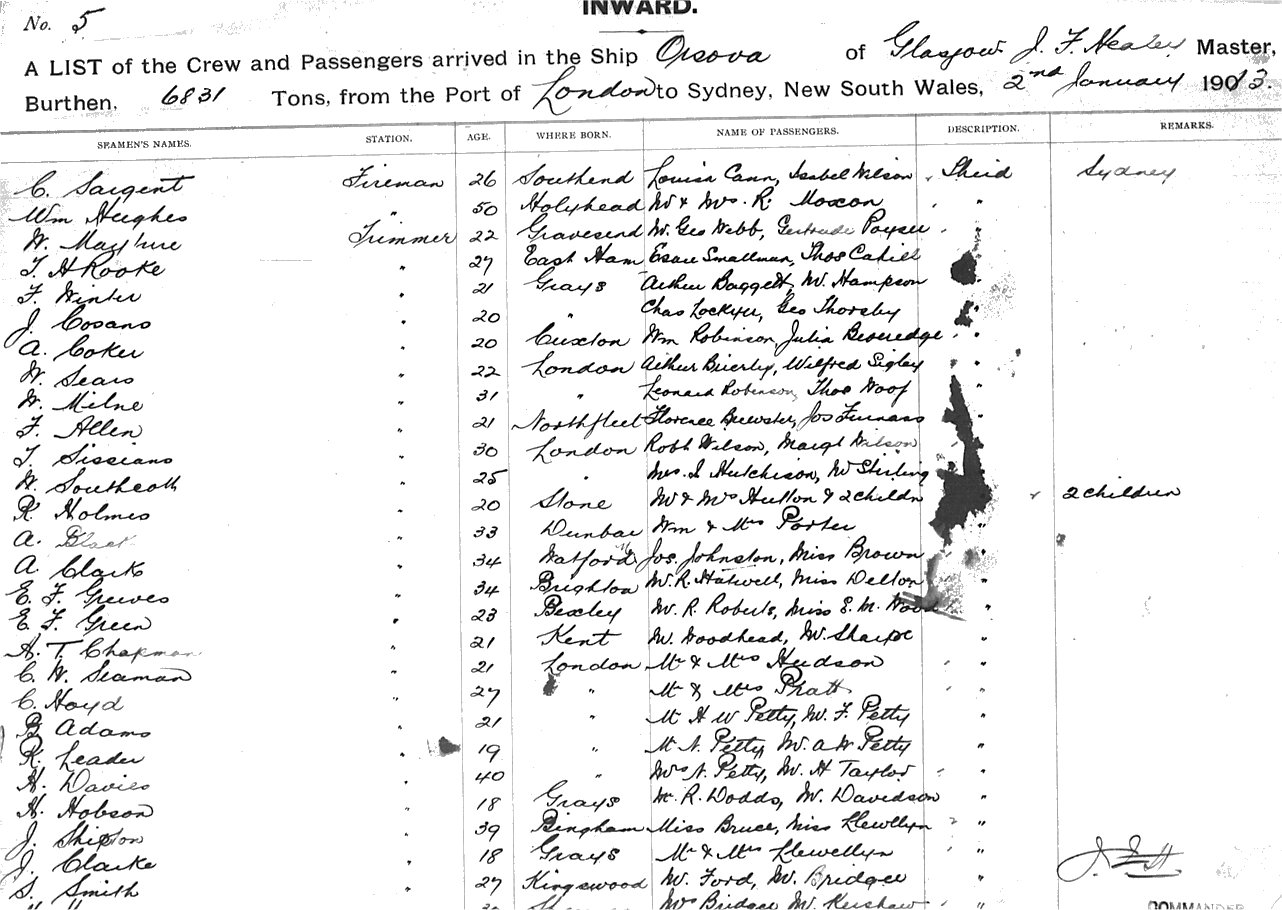 INWARD.
No. 5
A LIST of the Crew and Passengers arrived in the Ship Orsova of Glasgow J. F. Healey Master,
Burthen, 6831 Tons, from the Port of London to Sydney, New South Wales, 2nd January 1913.
SEAMEN'S NAMES. STATION. AGE. WHERE BORN. NAME OF PASSENGERS. DESCRIPTION. REMARKS.
C. Sargent Fireman 26 Southend Louisa Cann, Isabel Wilson Third Sydney
Wm Hughes " 50 Holyhead Mr & Mrs. R. Moxon "
W. Trimmer 22 Gravesend Mr. Geo Webb, Gertrude Poyser "
T. H Rooke " 27 East Ham Smallman, Thos Cahill "
F. Winter " 21 Grays Arthur Baggett, Mr. Hampson "
J. Cosans " 20 " Chas Lockyer, Geo Thorsby "
A. Coker " 20 Cuxton Wm Robinson, Julia Beveredge "
W. Sears " 22 London Arthur Brierly, Wilfred Sigley "
W. Milne " 31 " Leonard Robinson, Thos Woof "
F. Allen " 21 Northfleet Florence Brewster, Jos Furnass "
T. " 30 London Robt Wilson, Margt Wilson "
W. " 25 " Mrs. I. Hutchison, Mr Stirling "
R. Holmes " 20 Stone Mr & Mrs Hutton & 2 childn " 2 children
A. Black " 33 Dunbar Wm & Mrs Porter "
A. Clark " 34 Watford Jos. Johnston, Miss Brown "
E. F. Greeves " 34 Brighton Mr. R. Halwell, Miss Delton "
E. F. Green " 23 Bexley Mr. R. Roberts, Miss E. M. Wood "
A. T. Chapman " 21 Kent Mr. Woodhead, Mr. Sharpe "
C. W. Seaman " 21 London Mr & Mrs Hudson "
C. " 27 " Mr & Mrs Pratt "
B Adams " 21 " Mr H W Petty, Mr. F. Petty "
R. Leader " 19 " Mr N. Petty, Mr. A W Petty "
H. Davies " 40 " Mrs N. Petty, Mr. H Taylor "
H. Hobson " 18 Grays Mr. R. Dodds, Mr. Davidson "
J. Shipton " 39 Bingham Miss Bruce, Miss Llewellyn "
J. Clarke " 18 Grays Mr & Mrs Llewellyn "
S. Smith " 27 Kingswood Mr. Ford, Mr. Bridger "
Mrs Bridger Mr. Kershaw "
COMMANDER